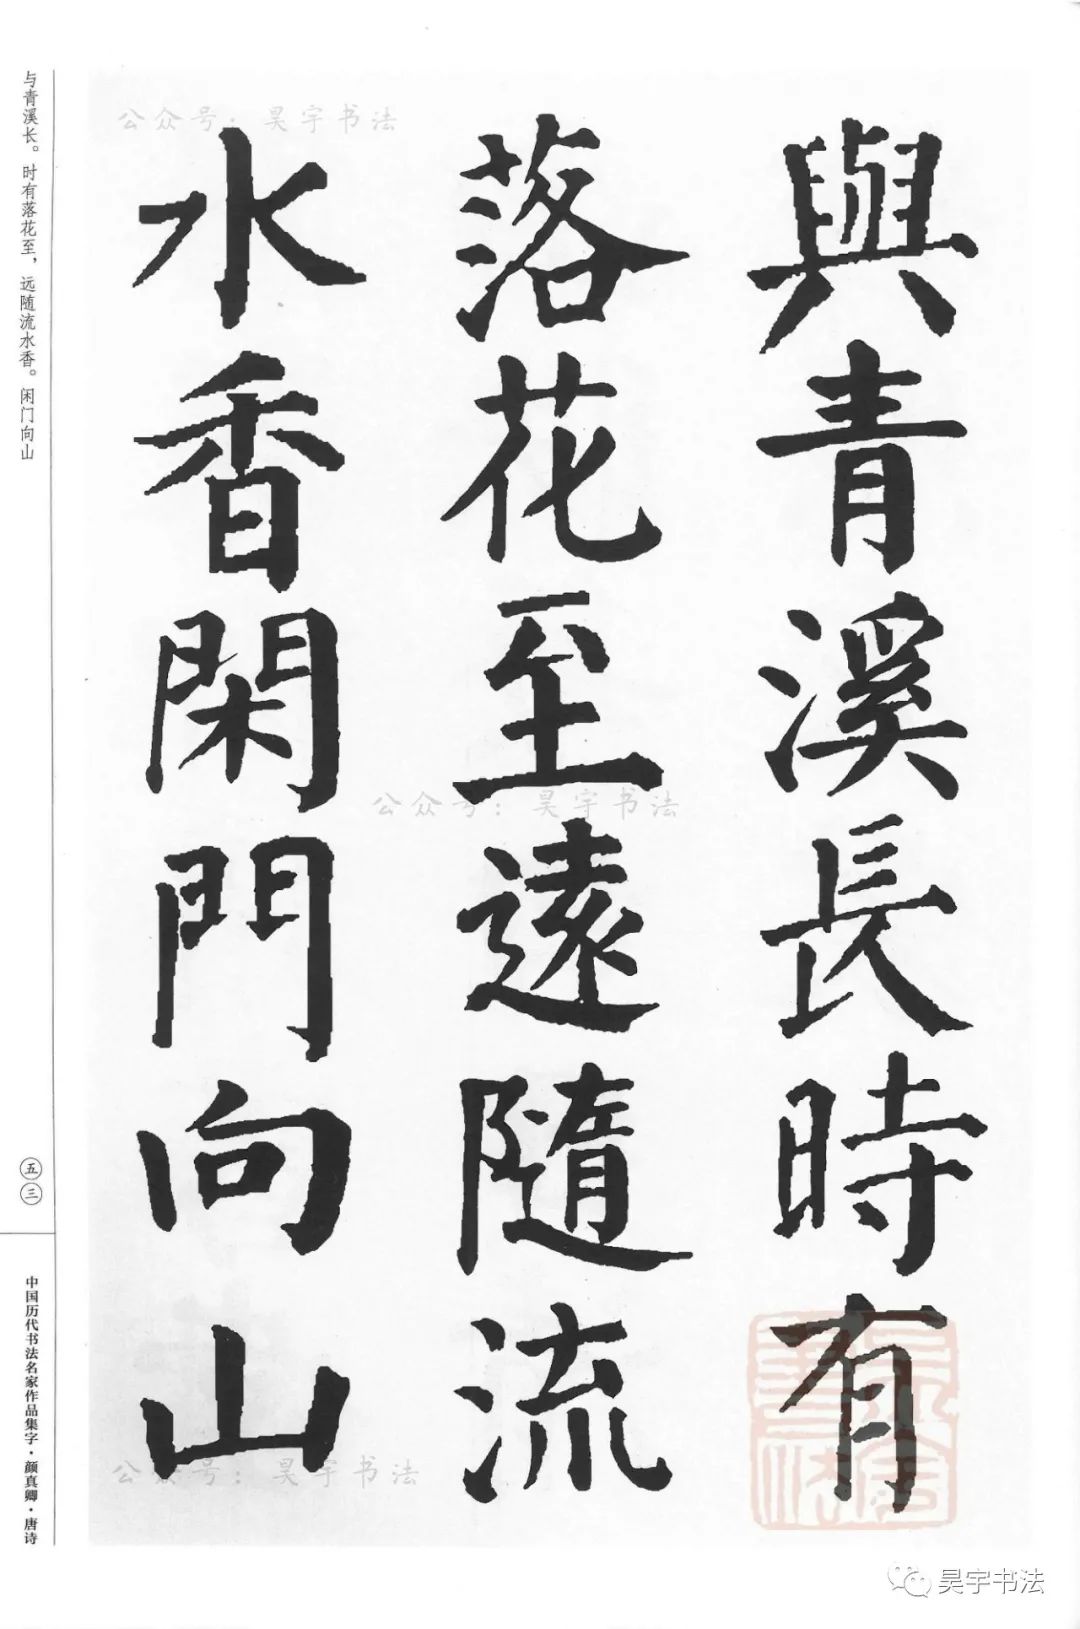 與青溪長時有
落花至遠隨流
水香閑門向山
与青溪长。时有落花至，远随流水香。闲门向山
五三
中国历代书法名家作品集字·颜真卿·唐诗
公众号：昊宇书法
公众号：昊宇书法
公众号：昊宇书法
昊宇书法